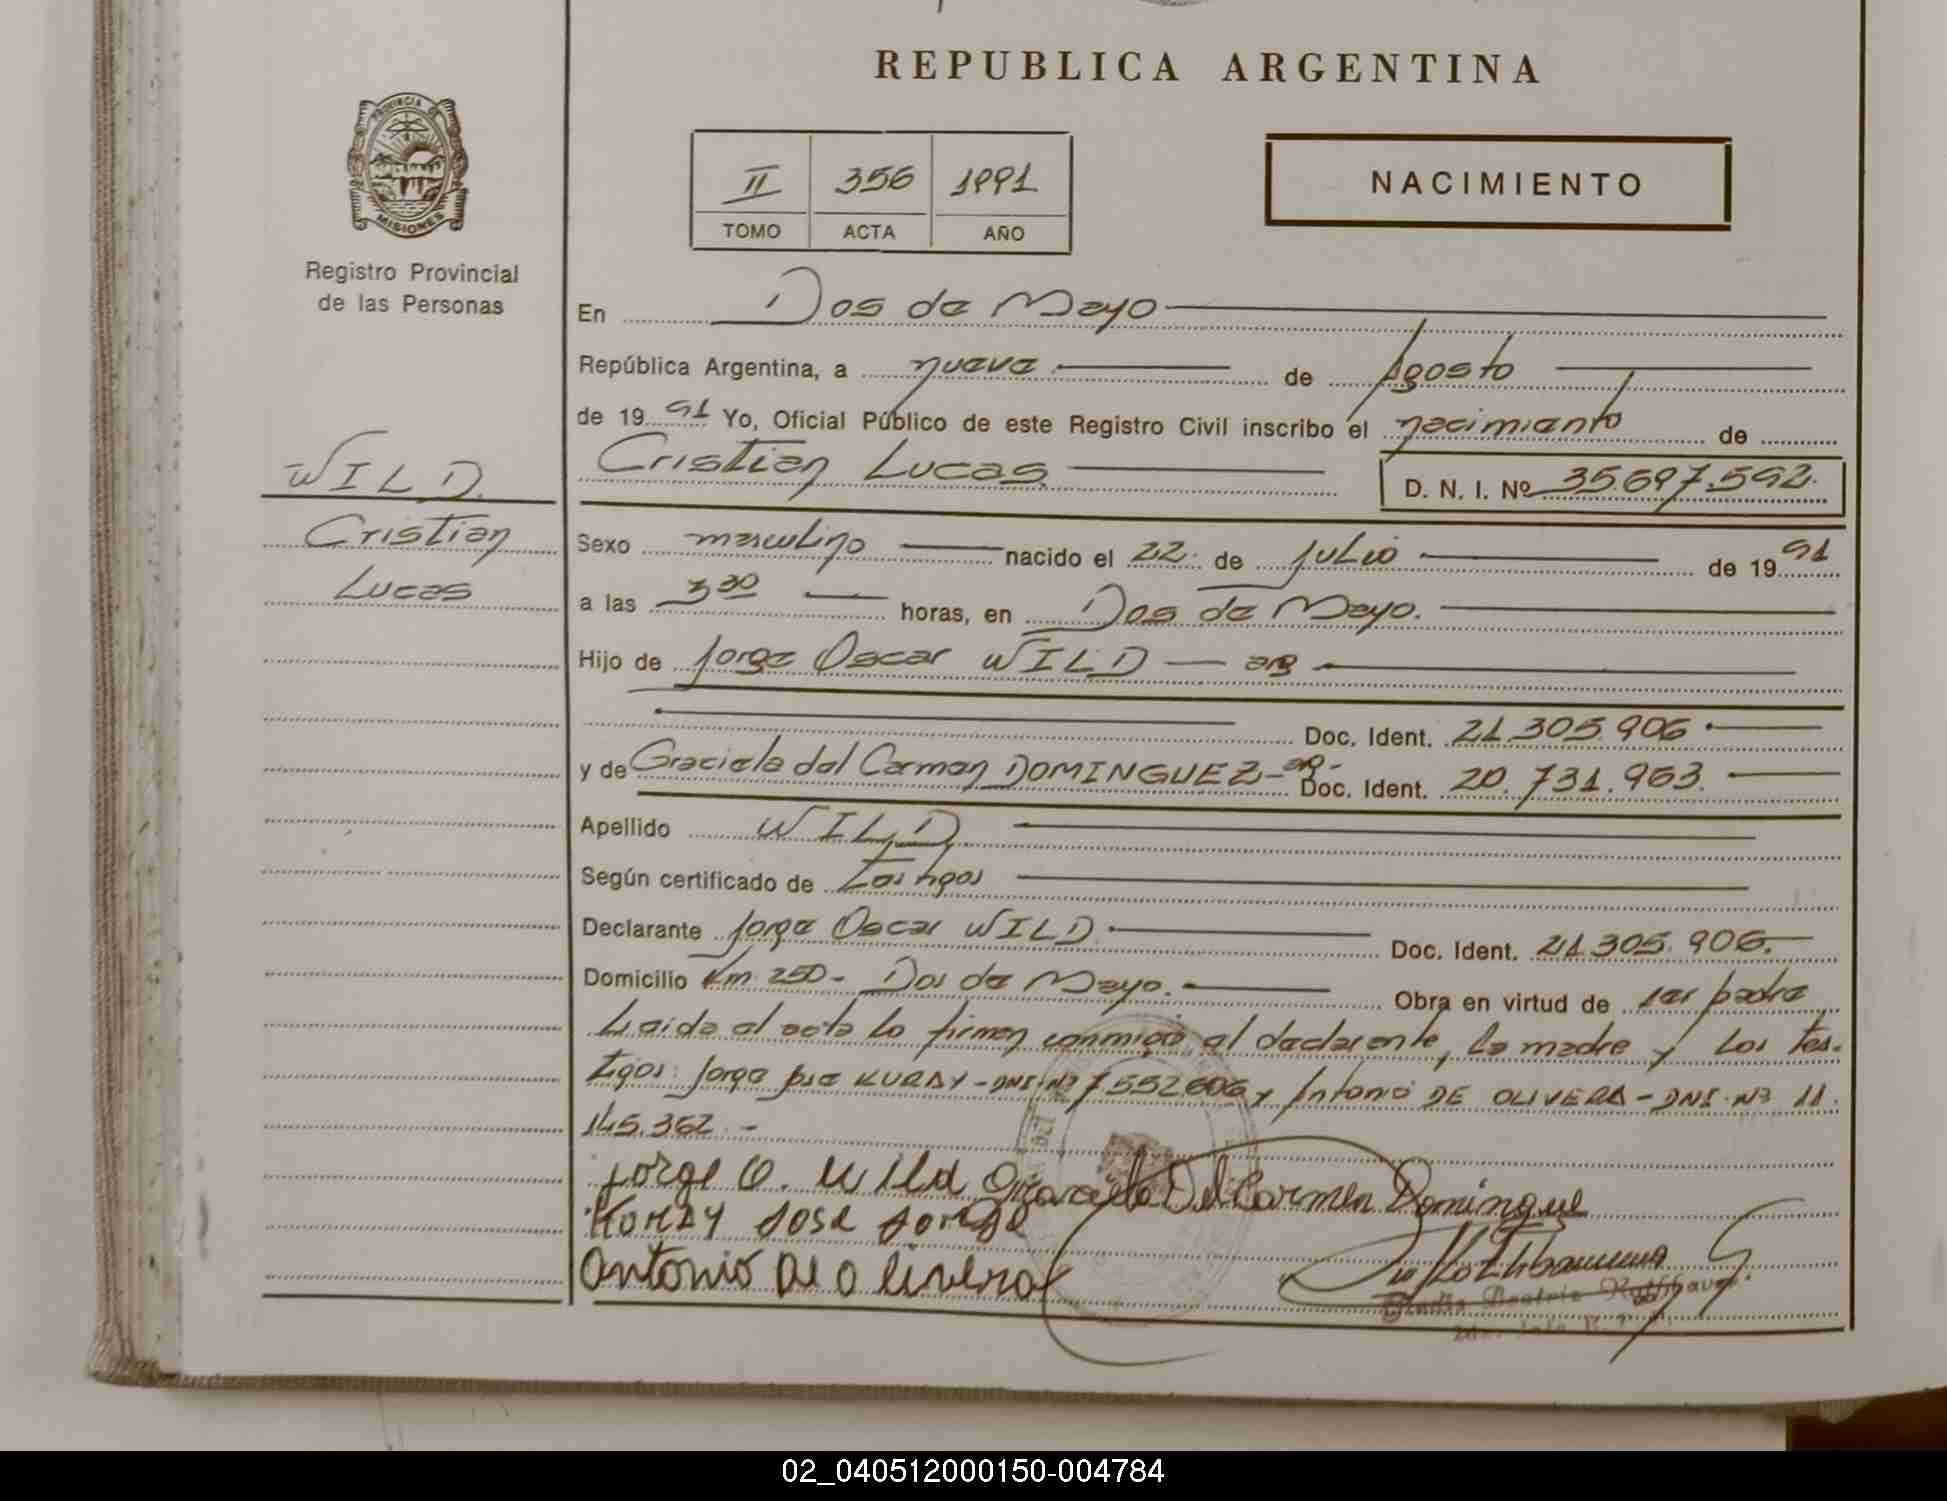 REPUBLICA ARGENTINA
PROVINCIA DE
MISIONES
Registro Provincial
de las Personas
II 356 1991
TOMO ACTA AÑO
NACIMIENTO
WILD
Cristian
Lucas
En Dos de Mayo
República Argentina, a nueve de Agosto
de 1991 Yo, Oficial Público de este Registro Civil inscribo el nacimiento de
Cristian Lucas D. N. I. Nº 35.697.592.
Sexo masculino nacido el 22 de Julio de 1991
a las 3 30 horas, en Dos de Mayo.
Hijo de Jorge Oscar WILD — arg
Doc. Ident. 21.305.906
y de Graciela del Carmen DOMINGUEZ - arg - Doc. Ident. 20.731.963.
Apellido WILD
Según certificado de Testigos
Declarante Jorge Oscar WILD Doc. Ident. 21.305.906.
Domicilio Km 250 - Dos de Mayo. Obra en virtud de ser padre
Leída el acta lo firman conmigo el declarante, la madre y los tes-
tigos: Jorge José KURDY - DNI Nº 7.552.606 y Antonio DE OLIVERA - DNI Nº 11.
145.362 -
Jorge O. Wild Graciela Del Carmen Domingue
José Jorge
Antonio De Olivera
Beatriz
02_040512000150-004784